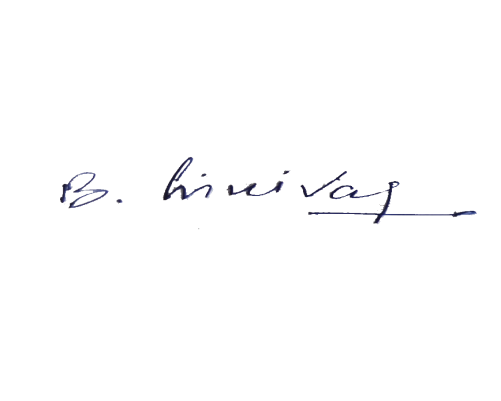 B. Srinivas